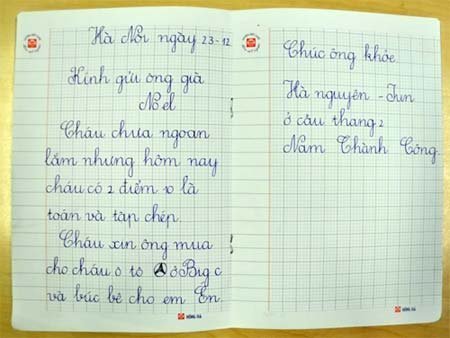 Hà Nội ngày 23-12
Kính gửi ông già
Nô el
Cháu chưa ngoan
lắm nhưng hôm nay
cháu có 2 điểm 10 là
toán và tập chép.
Cháu xin ông mua
cho cháu ô tô ở Big c
và búc bê cho em Én.
HỒNG HÀ
Chúc ông khỏe
Hà nguyên - Jun
ở câu thang 2
Nam Thành Công.
HỒNG HÀ